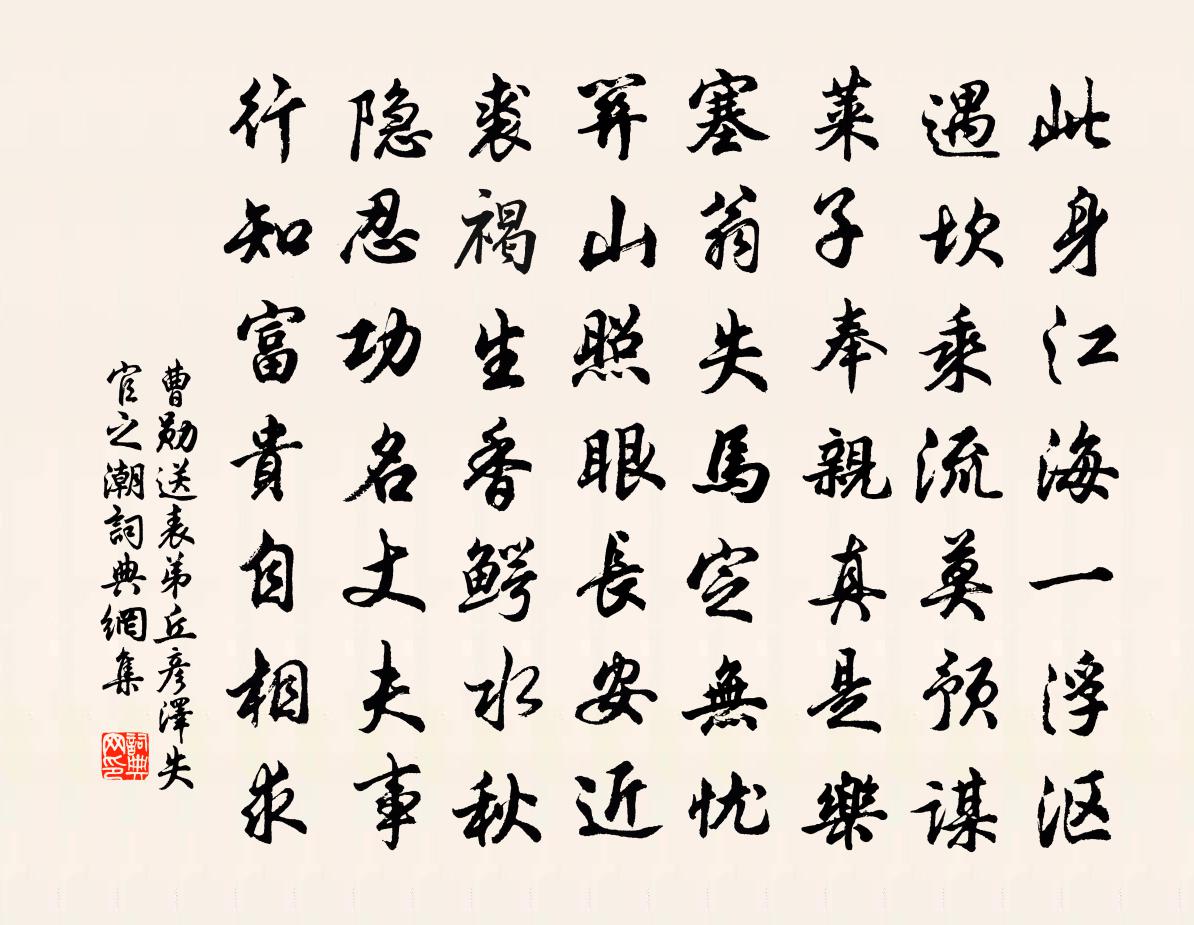 此身江海一浮沤
遇坎乘流莫预謀
萊子奉親真是樂
塞翁失馬定無忧
笄山照眼長安近
裘褐生香鳄水秋
隐忍功名丈夫事
行知富貴自相求
曹勋送表弟丘彦澤失
官之潮詞典網集
詞典
网印